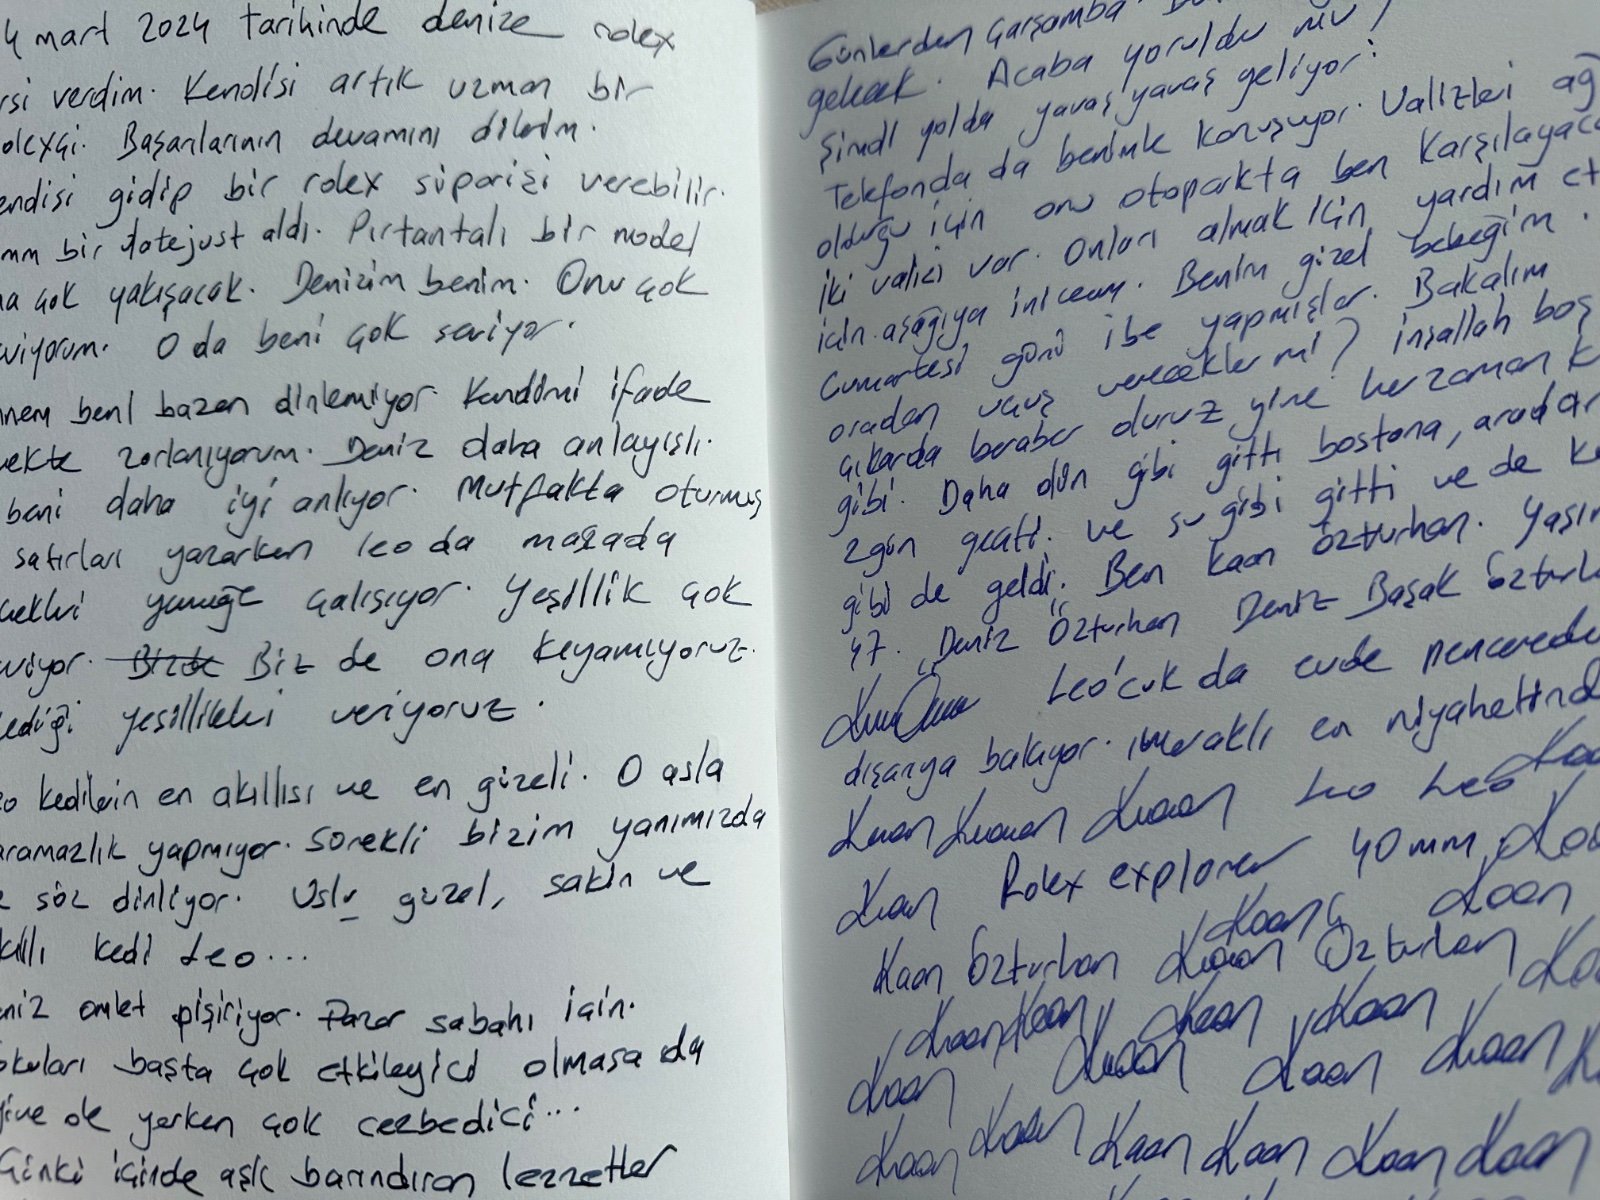 4 mart 2024 tarihinde denize rolex
verdim. Kendisi artık uzman bir
Başarılarının devamını dilerim.
gidip bir rolex siparişi verebilir.
mm bir datejust aldı. Pırtantalı bir model
çok yakışacak. Denizim benim. Onu çok
O da beni çok seviyor.
beni bazen dinlemiyor. Kendimi ifade
zorlanıyorum. Deniz daha anlayışlı.
beni daha iyi anlıyor. Mutfakta oturmuş
satırları yazarken leo da masada
yemeğe çalışıyor. Yeşillik çok
Bizde Biz de ona kıyamıyoruz.
yeşillikleri veriyoruz.
kedilerin en akıllısı ve en güzeli. O asla
yapmıyor. Sürekli bizim yanımızda
söz dinliyor. Uslu, güzel, sakin ve
kedi Leo...
omlet pişiriyor. Pazar sabahı için.
başta çok etkileyici olmasa da
yine de yerken çok cezbedici...
Çünki içinde aşk barındıran lezzetler
Günlerden Çarşamba
gelecek. Acaba yoruldu mu?
Şimdi yolda yavaş yavaş geliyor.
Telefonda da benimle konuşuyor. Valizleri
olduğu için onu otoparkta ben karşılayacağ
iki valizi var. Onları almak için yardım et
için aşağıya inicem. Benim güzel bebeğim.
Cumartesi günü ibe yapmışlar. Bakalım
oradan uçuş verecekler mi? İnşallah boş
çıkarda beraber oluruz yine herzaman k
gibi. Daha dün gibi gitti bostona, aradan
2 gün geçti. ve su gibi gitti ve de
gibi de geldi. Ben Kaan Özturhan. Yaşım
47. Deniz Özturhan Deniz Başak Özturh
Leo'cuk da evde pencereden
dışarıya bakıyor. meraklı en niyahetinde
Kaan Kaaan Kaaan Leo Leo Kaan
Kaan Rolex explorer 40mm, Kaa
Kaan Kaan
Kaan Özturhan Kaaan Özturhan Kaa
Kaan Kaan Kaan Kaan
Kaan Kaaan Kaan Kaaan
Kaan Kaan Kaan Kaan Kaan Kaan